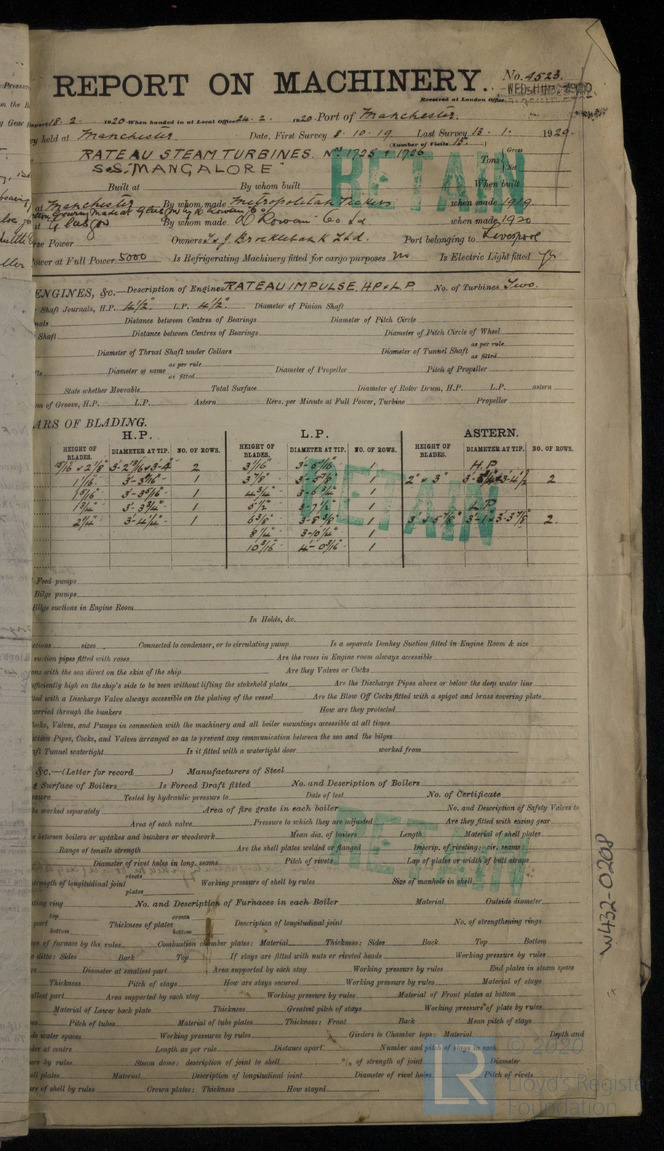 REPORT ON MACHINERY. No. 4523
Received at London Office
18.2. 1920 When handed in at Local Office 24.2. 1920 Port of Manchester.
held at Manchester. Date, First Survey 8.10.19 Last Survey 13.1. 1920
(Number of Visits 15.)
RATEAU STEAM TURBINES. Nos 1725 + 1726
S.S. MANGALORE. Tons Gross
Net
Built at By whom built When built
at Manchester By whom made Metropolitan Vickers when made 1919
at Glasgow By whom made D. Rowan & Co Ld when made 1920
Power Owners T. & J. Brocklebank Ltd. Port belonging to Liverpool
Power at Full Power 5000 Is Refrigerating Machinery fitted for cargo purposes No Is Electric Light fitted
ENGINES, &c.—Description of Engines RATEAU IMPULSE, HP & LP No. of Turbines Two.
Shaft Journals, H.P. 4½" L.P. 4½" Diameter of Pinion Shaft
Distance between Centres of Bearings Diameter of Pitch Circle
Shaft Distance between Centres of Bearings Diameter of Pitch Circle of Wheel
Diameter of Thrust Shaft under Collars Diameter of Tunnel Shaft as per rule as fitted
Diameter of same as per rule as fitted Diameter of Propeller Pitch of Propeller
State whether Moveable Total Surface Diameter of Rotor Drum, H.P. L.P. astern
of Groove, H.P. L.P. Astern Revs. per Minute at Full Power, Turbine Propeller
ARS OF BLADING.
H.P. L.P. ASTERN.
HEIGHT OF BLADES. DIAMETER AT TIP. NO. OF ROWS. HEIGHT OF BLADES. DIAMETER AT TIP. NO. OF ROWS. HEIGHT OF BLADES. DIAMETER AT TIP. NO. OF ROWS.
2 1 H.P
1 1 2" & 3" 2
1 1 L.P
1 1
1 1 2.
1
1
RETAIN
RETAIN
Feed pumps
Bilge pumps
Bilge suctions in Engine Room
In Holds, &c.
sizes Connected to condenser, or to circulating pump Is a separate Donkey Suction fitted in Engine Room & size
suction pipes fitted with roses Are the roses in Engine room always accessible
with the sea direct on the skin of the ship Are they Valves or Cocks
sufficiently high on the ship's side to be seen without lifting the stokehold plates Are the Discharge Pipes above or below the deep water line
with a Discharge Valve always accessible on the plating of the vessel Are the Blow Off Cocks fitted with a spigot and brass covering plate
carried through the bunkers How are they protected
Cocks, Valves, and Pumps in connection with the machinery and all boiler mountings accessible at all times
Pipes, Cocks, and Valves arranged so as to prevent any communication between the sea and the bilges
Tunnel watertight Is it fitted with a watertight door worked from
&c.—(Letter for record ) Manufacturers of Steel
Surface of Boilers Is Forced Draft fitted No. and Description of Boilers
Tested by hydraulic pressure to Date of test No. of Certificate
be worked separately Area of fire grate in each boiler No. and Description of Safety Valves to
Area of each valve Pressure to which they are adjusted Are they fitted with easing gear
between boilers or uptakes and bunkers or woodwork Mean dia. of boilers Length Material of shell plates
Range of tensile strength Are the shell plates welded or flanged Descrip. of riveting: cir. seams
Diameter of rivet holes in long. seams Pitch of rivets Lap of plates or width of butt straps
RETAIN
strength of longitudinal joint rivets plates Working pressure of shell by rules Size of manhole in shell
ring No. and Description of Furnaces in each Boiler Material Outside diameter
part top bottom Thickness of plates crown bottom Description of longitudinal joint No. of strengthening rings
of furnace by the rules Combustion chamber plates: Material Thickness: Sides Back Top Bottom
ditto: Sides Back Top If stays are fitted with nuts or riveted heads Working pressure by rules
Diameter at smallest part Area supported by each stay Working pressure by rules End plates in steam space
Thickness Pitch of stays How are stays secured Working pressure by rules Material of stays
smallest part Area supported by each stay Working pressure by rules Material of Front plates at bottom
Material of Lower back plate Thickness Greatest pitch of stays Working pressure of plate by rules
Pitch of tubes Material of tube plates Thickness: Front Back Mean pitch of stays
water spaces Working pressures by rules Girders to Chamber tops: Material Depth and
at centre Length as per rule Distance apart Number and pitch of stays in each
by rules Steam dome: description of joint to shell % of strength of joint Diameter
plates Material Description of longitudinal joint Diameter of rivet holes Pitch of rivets
of shell by rules Crown plates: Thickness How stayed
W432-0208
LR
© 2020
Lloyd's Register
Foundation